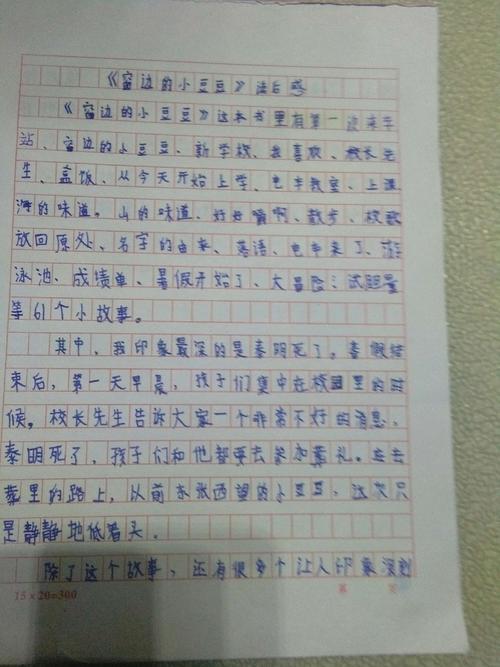 《窗边的小豆豆》读后感
《窗边的小豆豆》这本书里有第一次来车
站、窗边的小豆豆、新学校、我喜欢、校长先
生、盒饭、从今天开始上学、电车教室、上课
海的味道。山的味道、好好嚼啊、散步、校歌
放回原处、名字的由来、落语、电车来了、游
泳池、成绩单、暑假开始了、大冒险、试胆量
等61个小故事。
其中,我印象最深的是泰明死了。春假结
束后,第一天早晨,孩子们集中在校园里的时
候。校长先生告诉大家一个非常不好的消息,
泰明死了,孩子们和他都要去参加葬礼。在去
葬里的路上,以前东张西望的小豆豆,这次只
是静静地低着头。
除了这个故事,还有很多个让人印象深刻
15×20=300
第 页